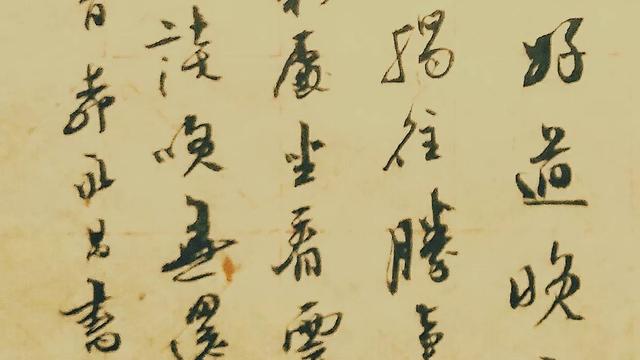 好道晚
獨往勝事
處坐看雲
談咲無還
書